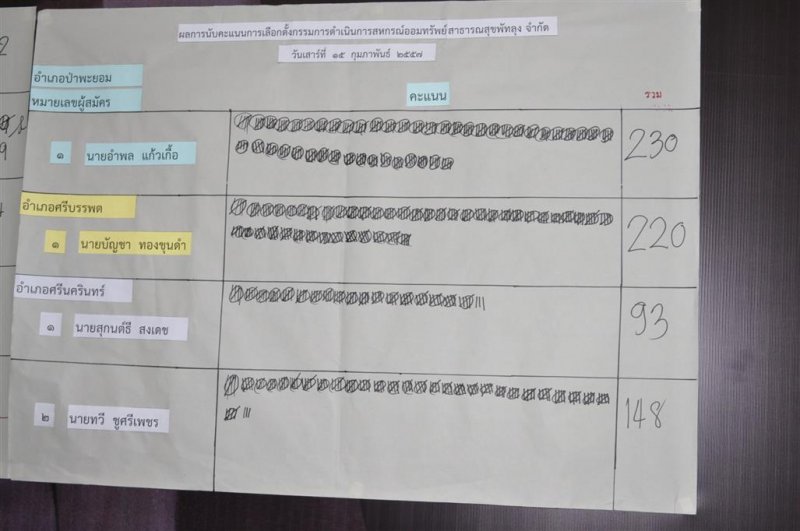 ผลการนับคะแนนการเลือกตั้งกรรมการดำเนินการสหกรณ์ออมทรัพย์สาธารณสุขพัทลุง จำกัด
วันเสาร์ที่ ๑๕ กุมภาพันธ์ ๒๕๕๗
อำเภอป่าพะยอม
หมายเลขผู้สมัคร คะแนน รวม
๑ นายอำพล แก้วเกื้อ 230
อำเภอศรีบรรพต
๑ นายบัญชา ทองขุนดำ 220
อำเภอศรีนครินทร์
๑ นายสุกนต์ธี สงเดช 93
๒ นายทวี ชูศรีเพชร 148
2
9